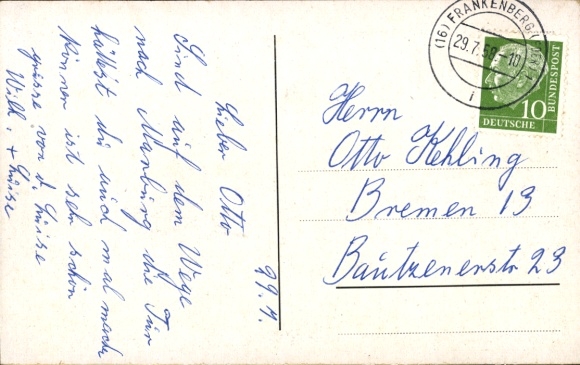 29.7.
Lieber Otto
Sind auf dem Wege
nach Marburg die Tür
hättest du auch mal mache
können ist sehr schön
Grüsse von d. Luise
Wilh. + Luise
(16) FRANKENBERG
29.7.59-10
i
10
DEUTSCHE BUNDESPOST
Herrn
Otto Kehling
Bremen 13
Bautzenerstr 23